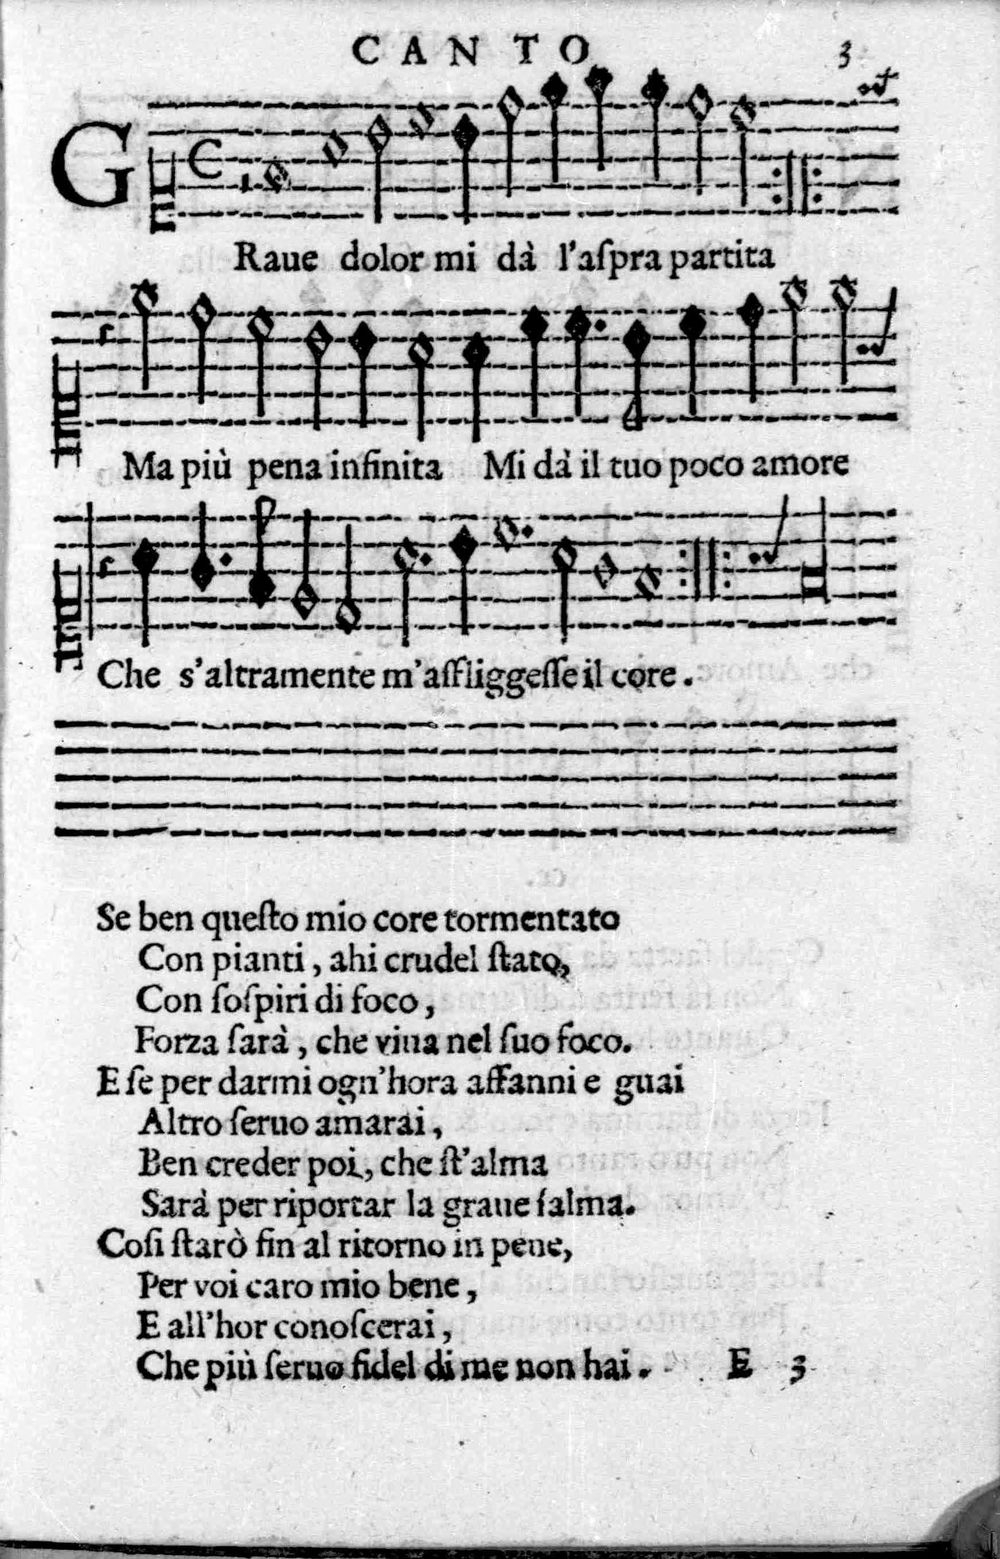 CANTO 3
GRaue dolor mi dà l'aſpra partita
Ma più pena infinita Mi dà il tuo poco amore
Che s'altramente m'affliggeſſe il core.
Se ben queſto mio core tormentato
Con pianti, ahi crudel ſtato,
Con ſoſpiri di foco,
Forza ſarà, che viua nel ſuo foco.
E ſe per darmi ogn'hora affanni e guai
Altro ſeruo amarai,
Ben creder poi, che ſt'alma
Sarà per riportar la graue ſalma.
Coſi ſtarò fin al ritorno in pene,
Per voi caro mio bene,
E all'hor conoſcerai,
Che più ſeruo fidel di me non hai. E 3